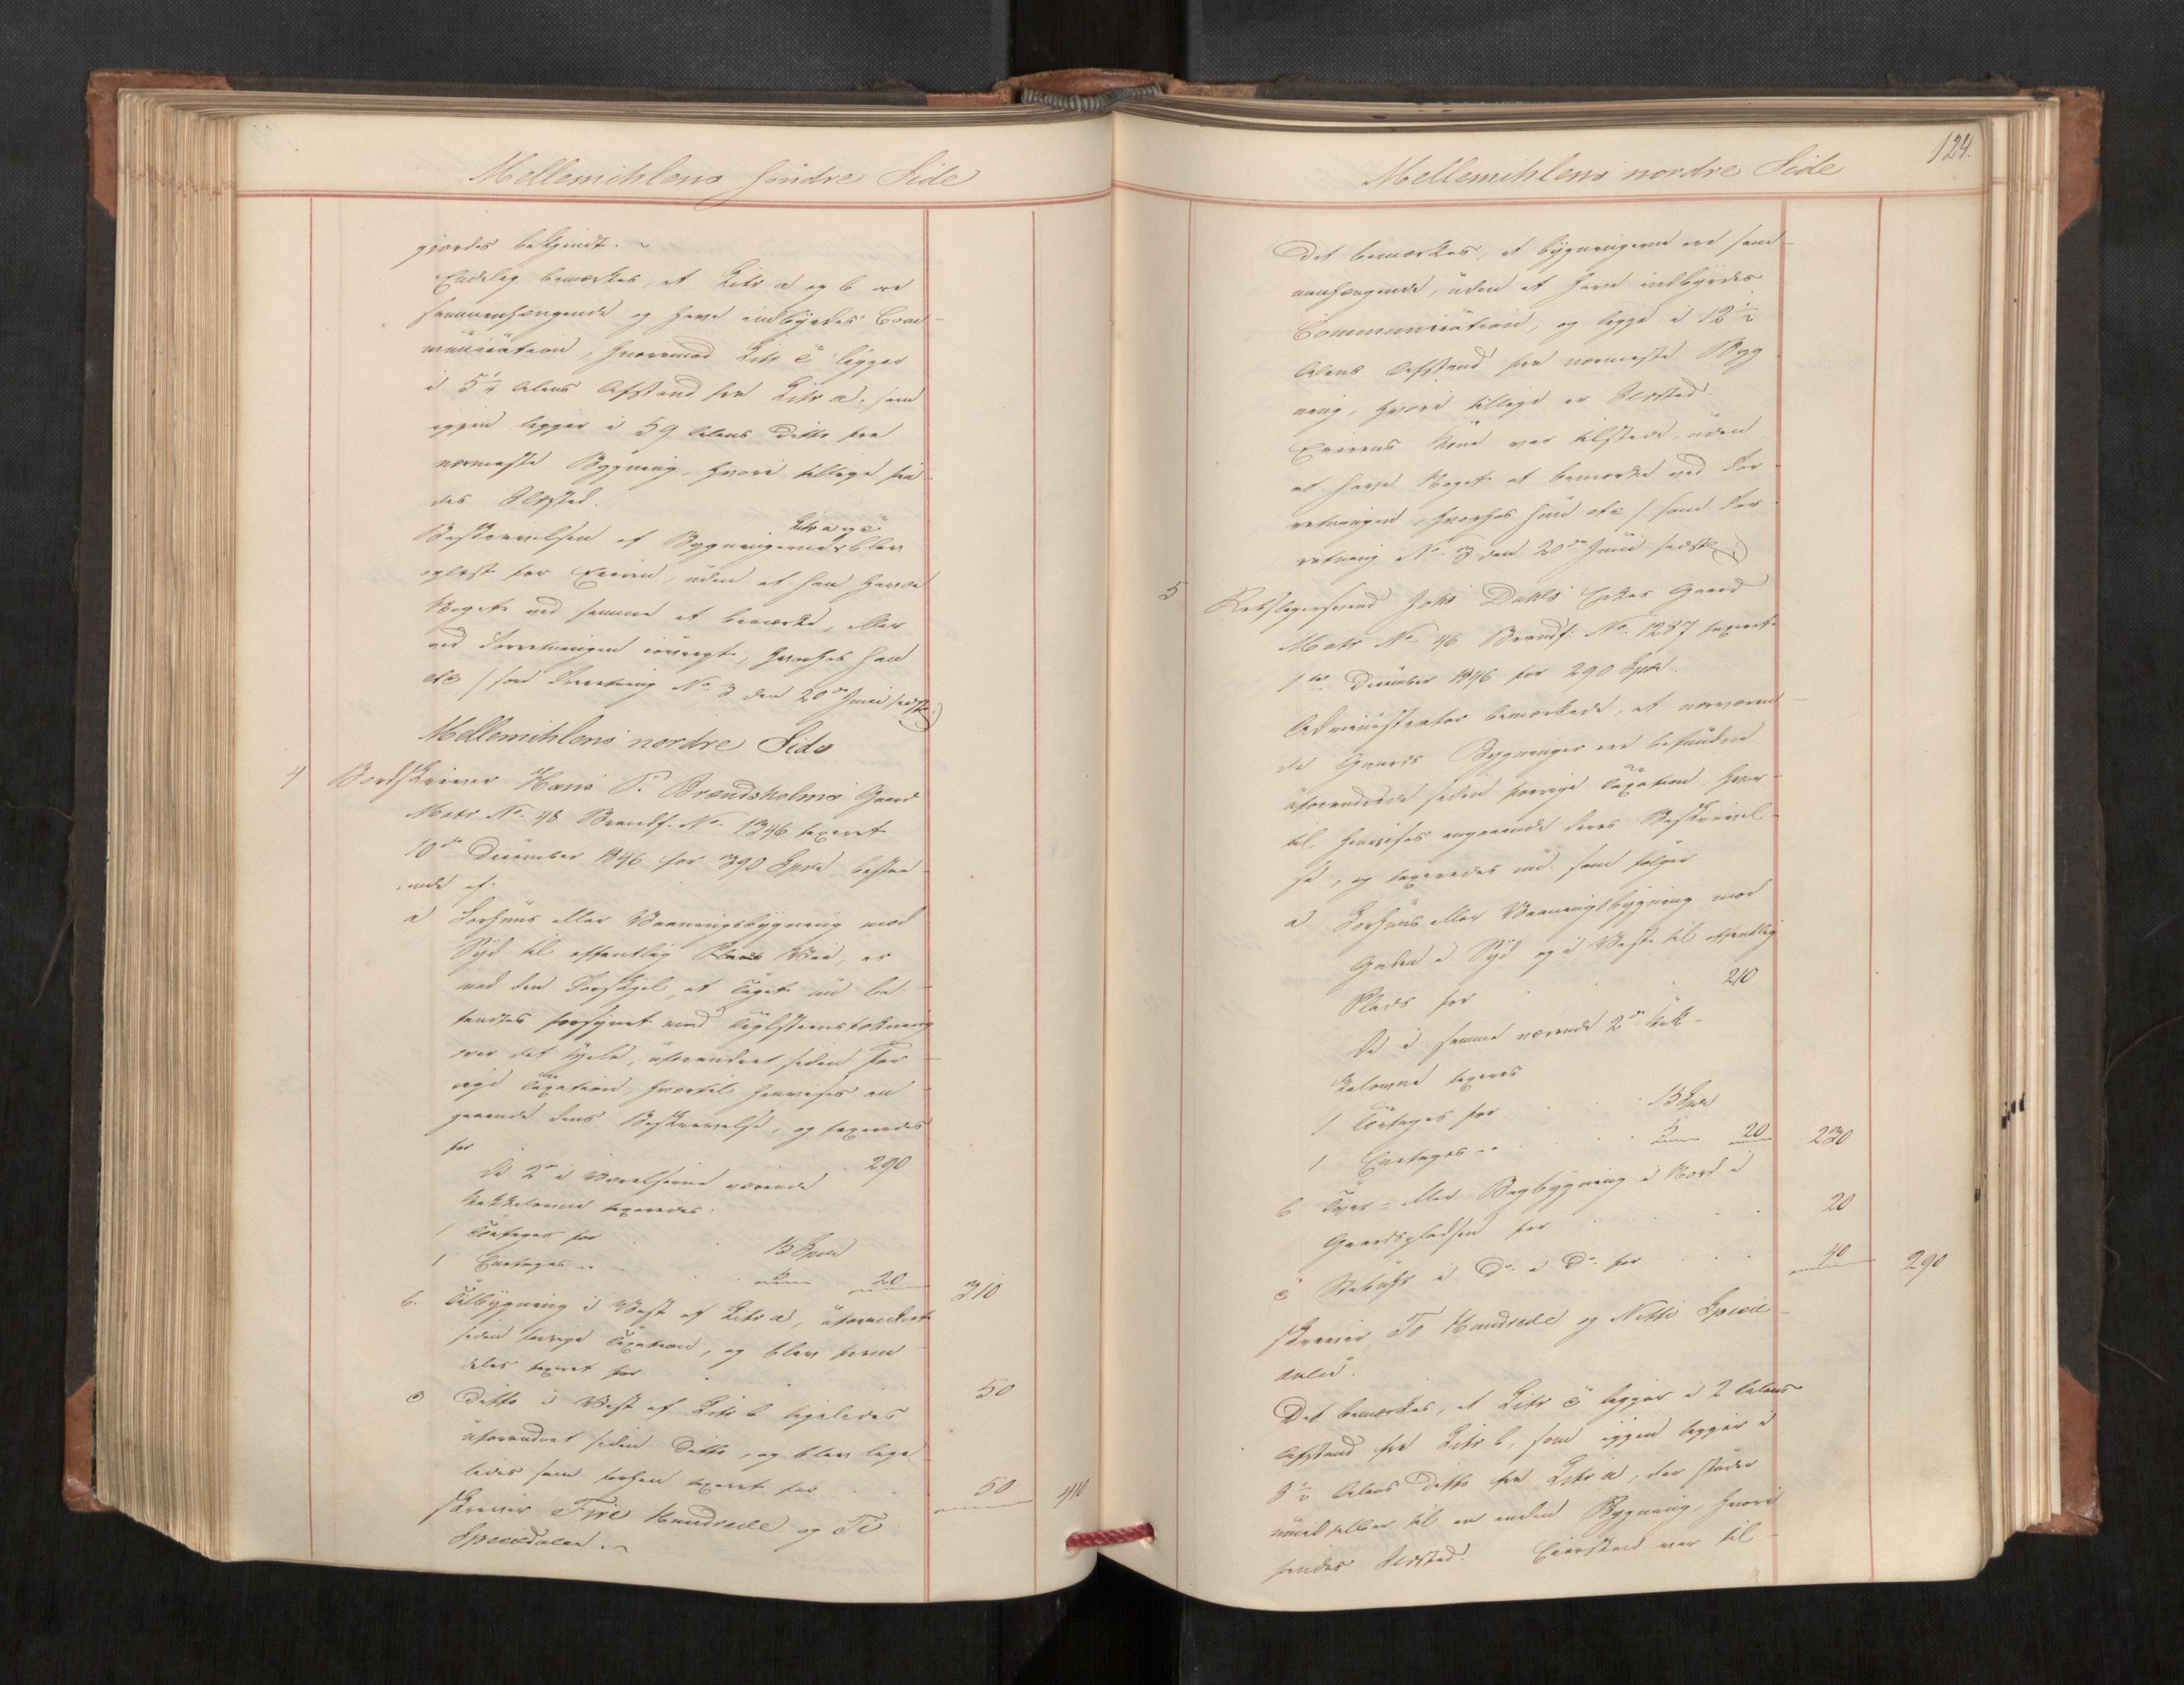 Mellemihlens søndre Side
gjordes bekjendt. ~
Endelig bemærkes, at Litr a og b ere
sammenhængende og have indbyrdes Com-
munication, hvorimod Litr c ligger
i 5 1/4 Alens Afstand fra Litr a, som
igjen ligger i 59 Alens Ditto fra
nærmeste Bygning, hvori tillige fin-
des Ildsted.
Beskrivelsen af Bygningerne Litr a og c blev
oplæst for Eieren, uden at han havde
Noget ved samme at bemærke, eller
ved Forretningen iøvrigt, hvorhos han
etc (som Forretning No 3 den 20de Juni sidstl.)
Mellemihlens nordre Side
4 Bordskriver Hans P. Brændsholms Gaard
Matr No 48 Brandf. No 1346 taxeret
10de December 1846 for 390 Spd bestaa-
ende af:
a Forhuus eller Vaaningsbygning mod
Syd til offentlig Vei, er
med den Forskjel, at Taget nu be-
fandtes forsynet med Tegelsteenstækning
over det Hele, uforandret siden for-
rige Taxation, hvortil henvises an-
gaaende dens Beskrivelse, og taxeredes
for 290
De 2de i Værelserne værende
Kakkelovne taxeredes:
1 Toetages for 15 Spd
1 Eenetages " 5 20 310
b. Tilbygning i Vest af Litr a, uforandret
siden forrige Taxation, og blev frem-
deles taxeret for 50
c Ditto i Vest af Litr b ligeledes
uforandret siden Ditto, og blev lige-
ledes som forhen taxeret for 50 410
skriver Fire Hundrede og Ti
Speciedaler. ~
124.
Mellemihlens nordre Side
Det bemærkes, at Bygningerne ere sam-
menhængende, uden at have indbyrdes
Communication, og ligge i 12 1/2
Alens Afstand fra nærmeste Byg-
ning, hvori tillige er Ildsted.
Eierens Kone var tilstede, uden
at have Noget at bemærke ved For-
retningen, hvorhos hun etc (som For-
retning No 3 den 20de Juni sidstl.)
5. Rebslagersvend Johs Dahls Enkes Gaard
Matr No 46 Brandf: No 1287 taxeret
1ste December 1846 for 290 Spd.
Administrator bemærkede, at nærværen-
de Gaards Bygninger ere befundne
uforandrede siden forrige Taxation, hvor-
til henvises angaaende deres Beskrivel-
se, og taxeredes nu som følger
a Forhuus eller Vaaningsbygning mod
Gaden i Syd og i Vest til offentlig
Plads for 210
De i samme værende 2de Kak-
kelovne taxeres
1 Toetages for 15 Spd
1 Eenetages " 5 20 230
b Tvær- eller Bagbygning i Nord i
Gaardspladsen for 20
c Stabuhr i Do i Do for 40 290
skriver To Hundrede og Nitti Specie-
daler.
Det bemærkes, at Litr c ligger i 2 Alens
Afstand fra Litr b, som igjen ligger i
3 1/2 Alens Ditto fra Litr a, der støder
umiddelbar til en anden Bygning, hvori
findes Ildsted. Eiersken var til-